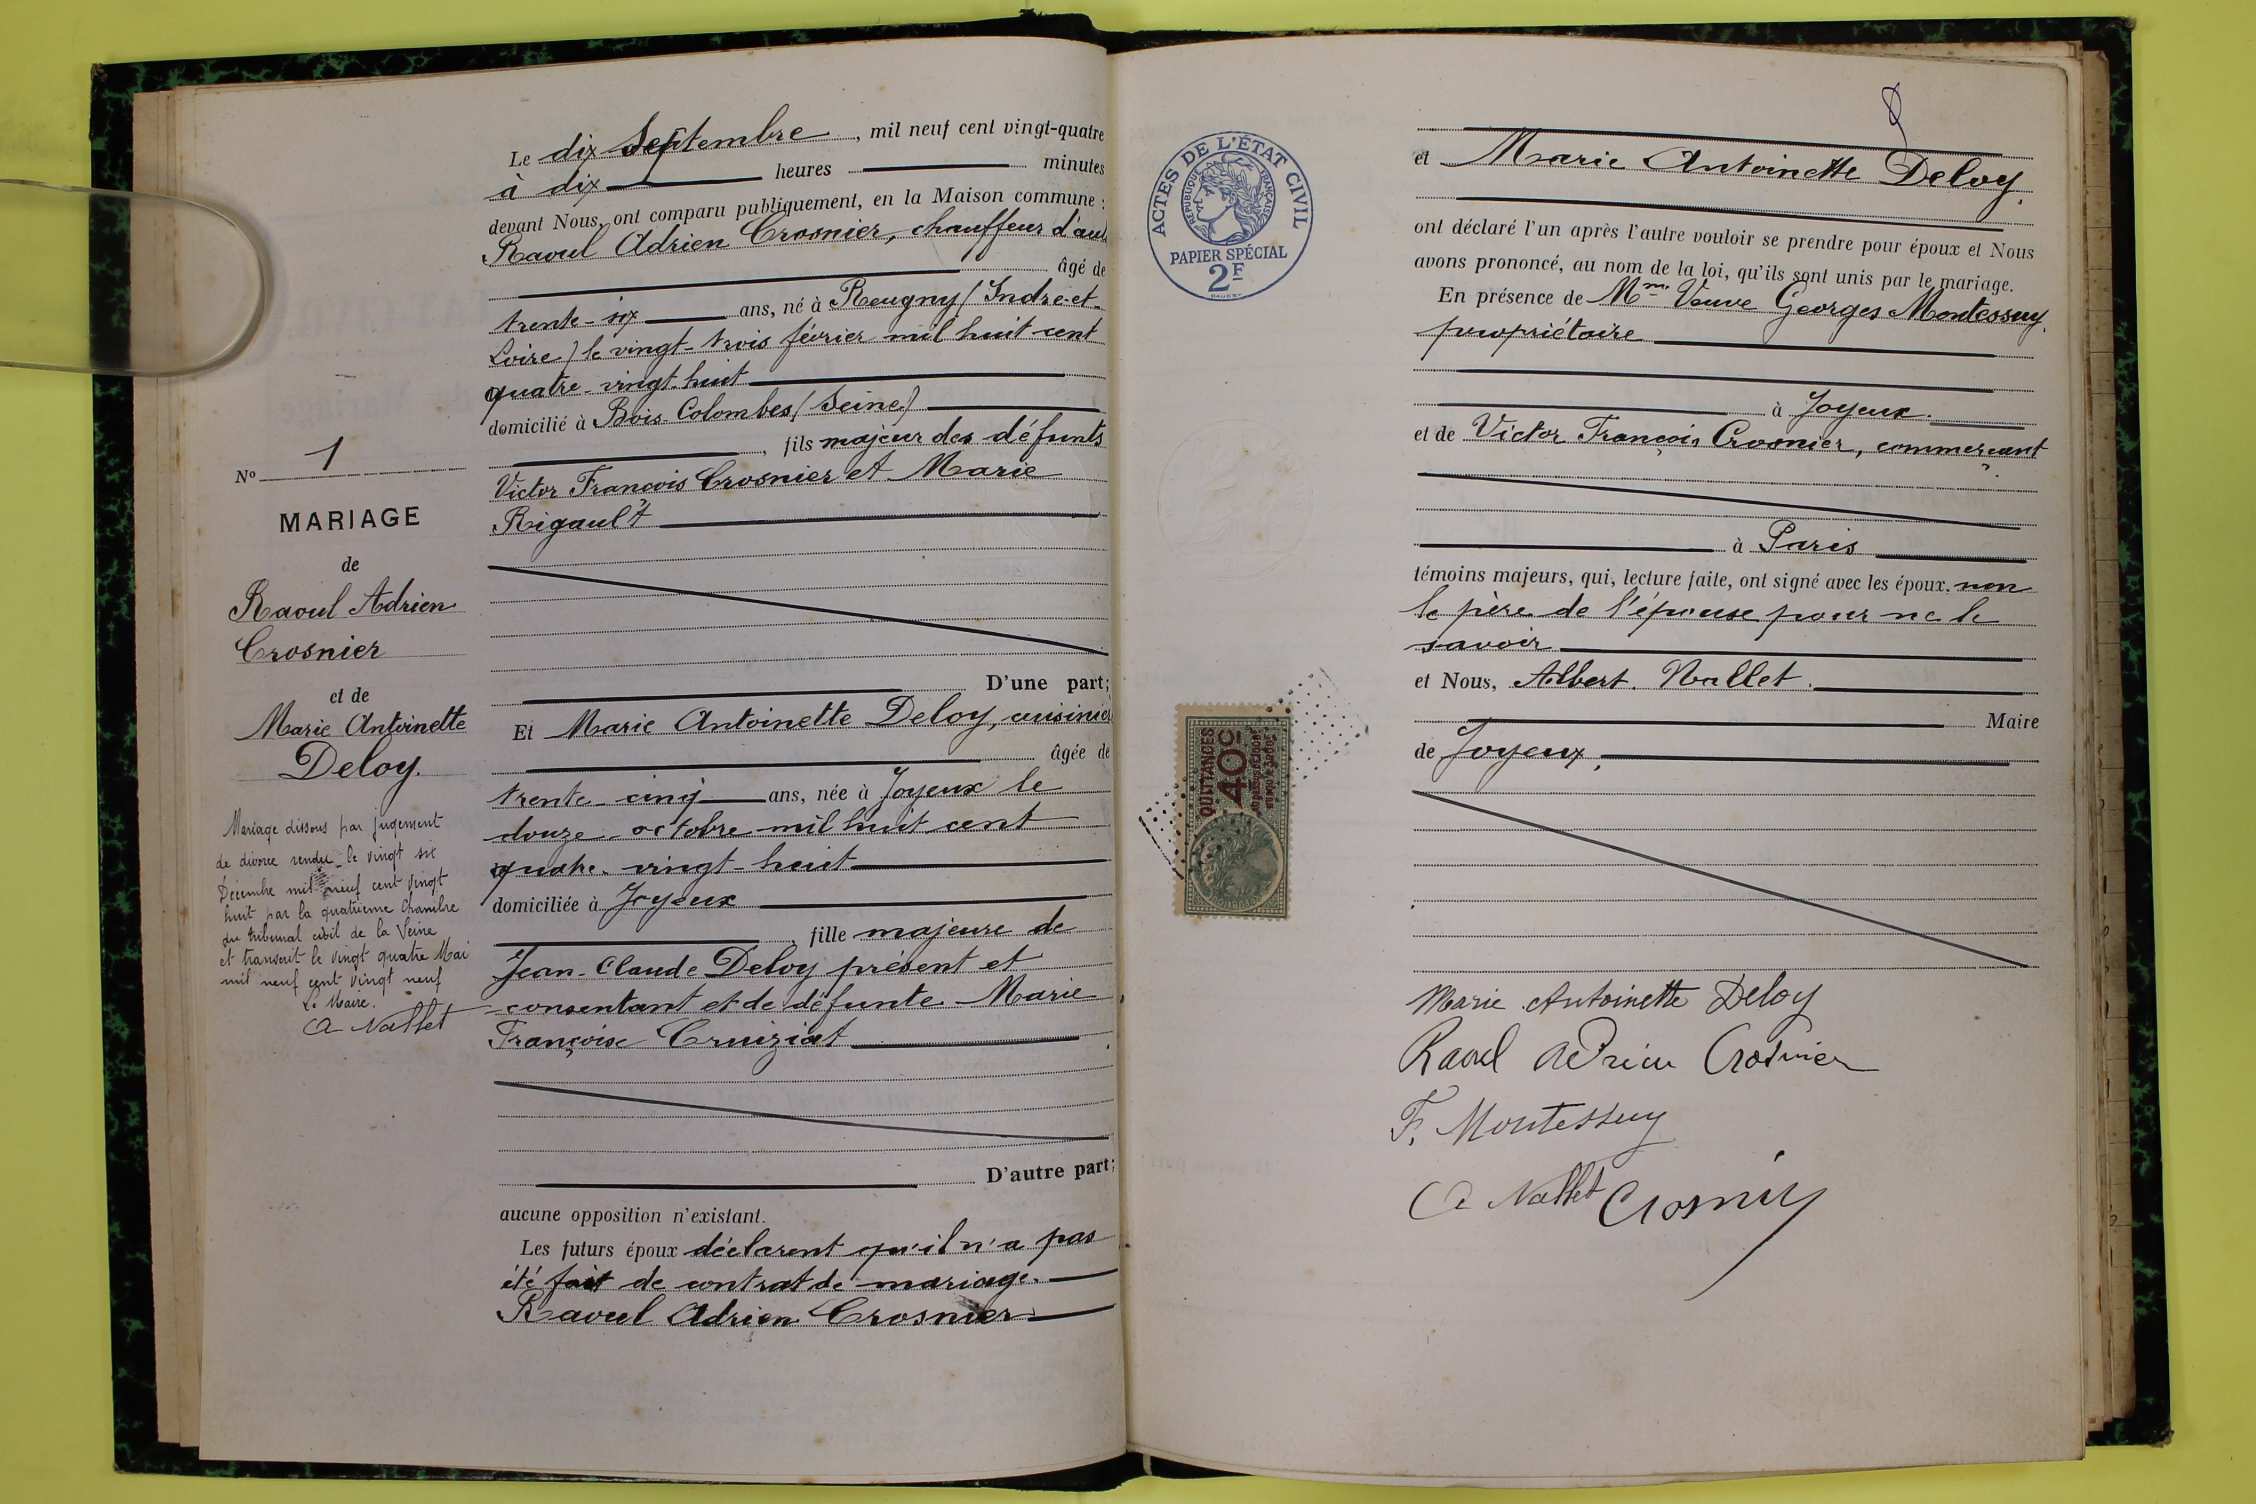 Nº 1
MARIAGE
de
Raoul Adrien
Crosnier
et de
Marie Antoinette
Deloy.
Mariage dissous par jugement
de divorce rendu le vingt six
Décembre mil neuf cent vingt
huit par la quatrième Chambre
du tribunal civil de la Seine
et transcrit le vingt quatre Mai
mil neuf cent vingt neuf
Le Maire.
A Nallet
Le dix Septembre, mil neuf cent vingt-quatre
à dix heures minutes
devant Nous, ont comparu publiquement, en la Maison commune :
Raoul Adrien Crosnier, chauffeur d'aut
âgé de
trente-six ans, né à Reugny (Indre-et-
Loire) le vingt-trois février mil huit cent
quatre-vingt-huit
domicilié à Bois-Colombes (Seine)
, fils majeur des défunts
Victor François Crosnier et Marie
Rigault
D'une part;
Et Marie Antoinette Deloy, cuisinièr
âgée de
trente-cinq ans, née à Joyeux le
douze octobre mil huit cent
quatre-vingt-huit
domiciliée à Joyeux
, fille majeure de
Jean-Claude Deloy présent et
consentant et de défunte Marie
Françoise Cruiziat
D'autre part;
aucune opposition n'existant.
Les futurs époux déclarent qu'il n'a pas
été fait de contrat de mariage.
Raoul Adrien Crosnier
ACTES DE L'ÉTAT CIVIL
RÉPUBLIQUE FRANÇAISE
PAPIER SPÉCIAL
2F
QUITTANCES
40c
et Marie Antoinette Deloy.
ont déclaré l'un après l'autre vouloir se prendre pour époux et Nous
avons prononcé, au nom de la loi, qu'ils sont unis par le mariage.
En présence de Mme Veuve Georges Montessuy,
propriétaire
à Joyeux.
et de Victor François Crosnier, commerçant
à Paris
témoins majeurs, qui, lecture faite, ont signé avec les époux. non
le père de l'épouse pour ne le
savoir
et Nous, Albert. Nallet.
Maire
de Joyeux.
Marie Antoinette Deloy
Raoul Adrien Crosnier
F. Montessuy
A Nallet Crosnier